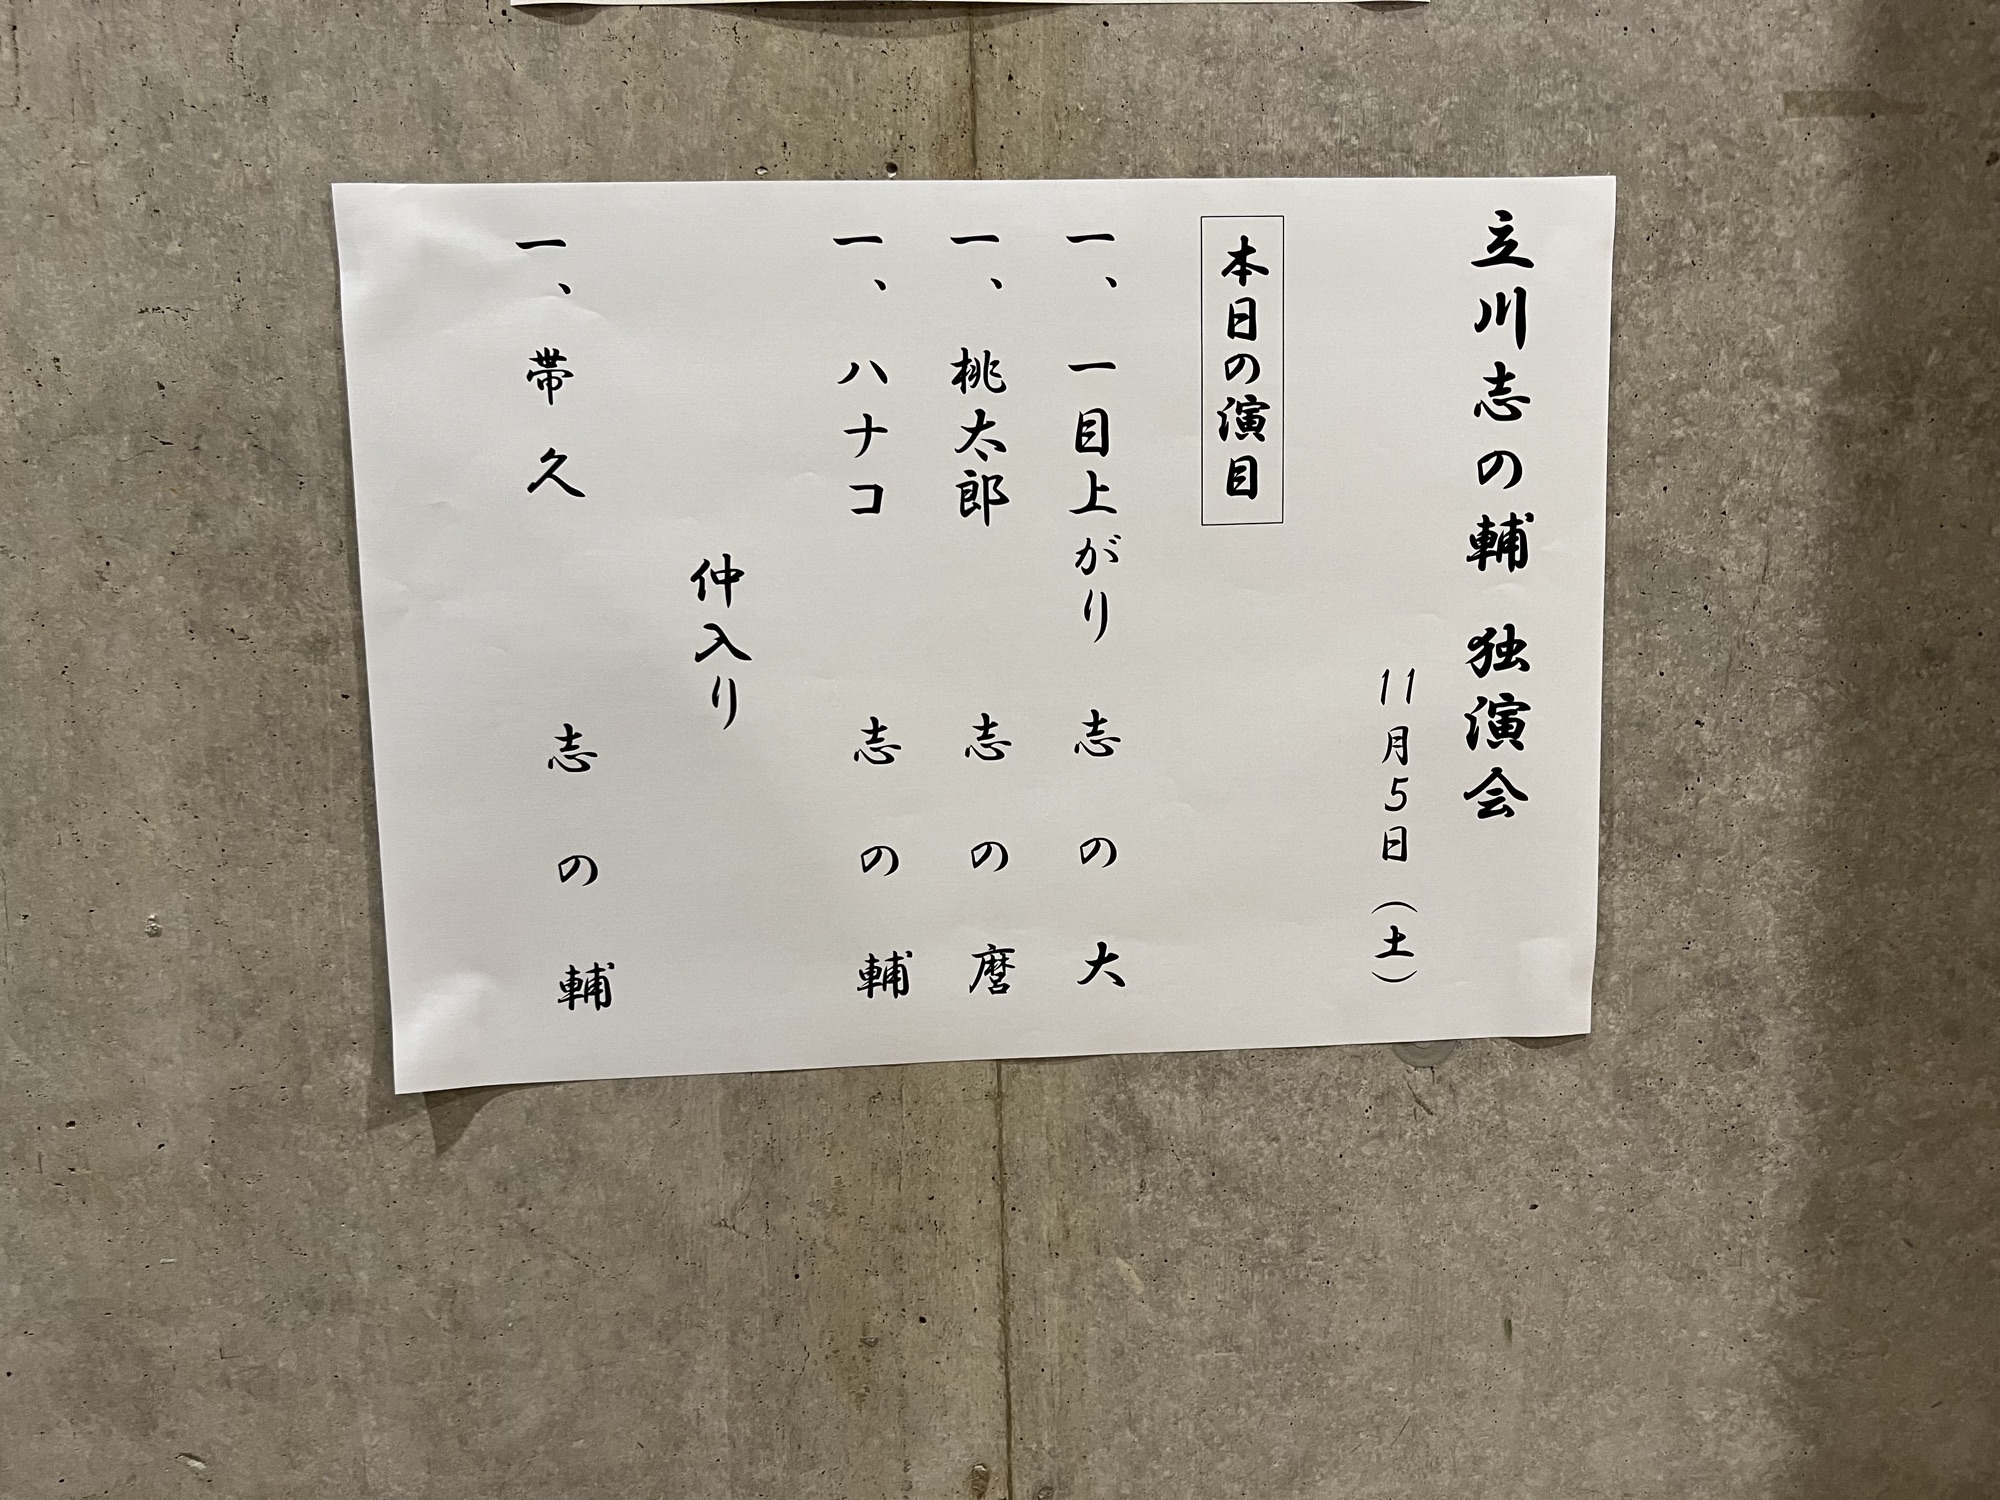 立川志の輔 独演会
11月5日（土）
本日の演目
一、一目上がり 志の大
一、桃太郎 志の麿
一、ハナコ 志の輔
仲入り
一、帯久 志の輔